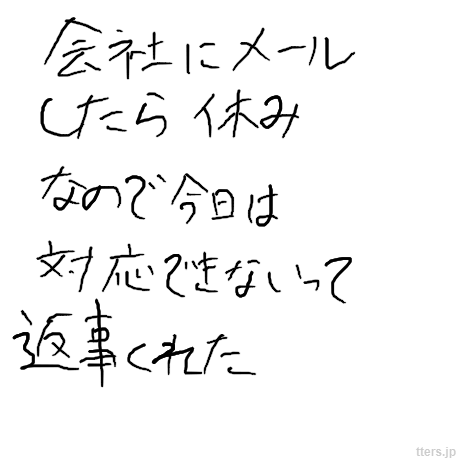 会社にメール
したら休み
なので今日は
対応できないって
返事くれた
tters.jp